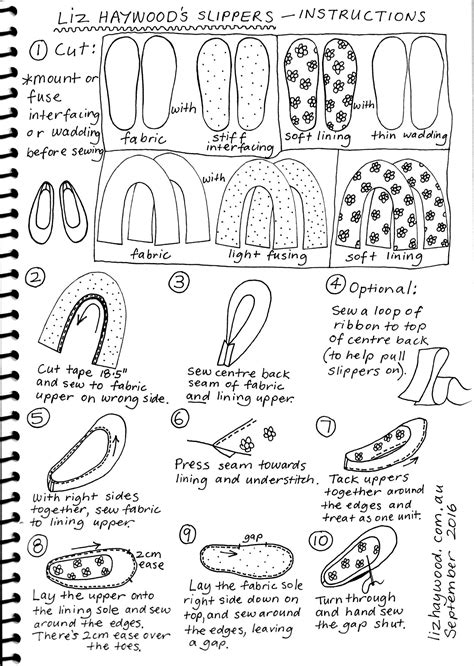 LIZ HAYWOOD'S SLIPPERS — INSTRUCTIONS
① Cut:
*mount or
fuse
interfacing
or wadding
before sewing
with
fabric
stiff
interfacing
with
soft lining
thin wadding
with
fabric
light fusing
soft lining
②
Cut tape 18·5"
and sew to fabric
upper on wrong side.
③
Sew centre back
seam of fabric
and lining upper.
④ Optional:
Sew a loop of
ribbon to top
of centre back
(to help pull
slippers on).
⑤
With right sides
together, sew fabric
to lining upper.
⑥
Press seam towards
lining and understitch.
⑦
Tack uppers
together around
the edges and
treat as one unit.
⑧
2cm
ease
Lay the upper onto
the lining sole and sew
around the edges.
There's 2cm ease over
the toes.
⑨
gap
Lay the fabric sole
right side down on
top, and sew around
the edges, leaving
a gap.
⑩
Turn through
and hand sew
the gap shut.
lizhaywood.com.au
September 2016